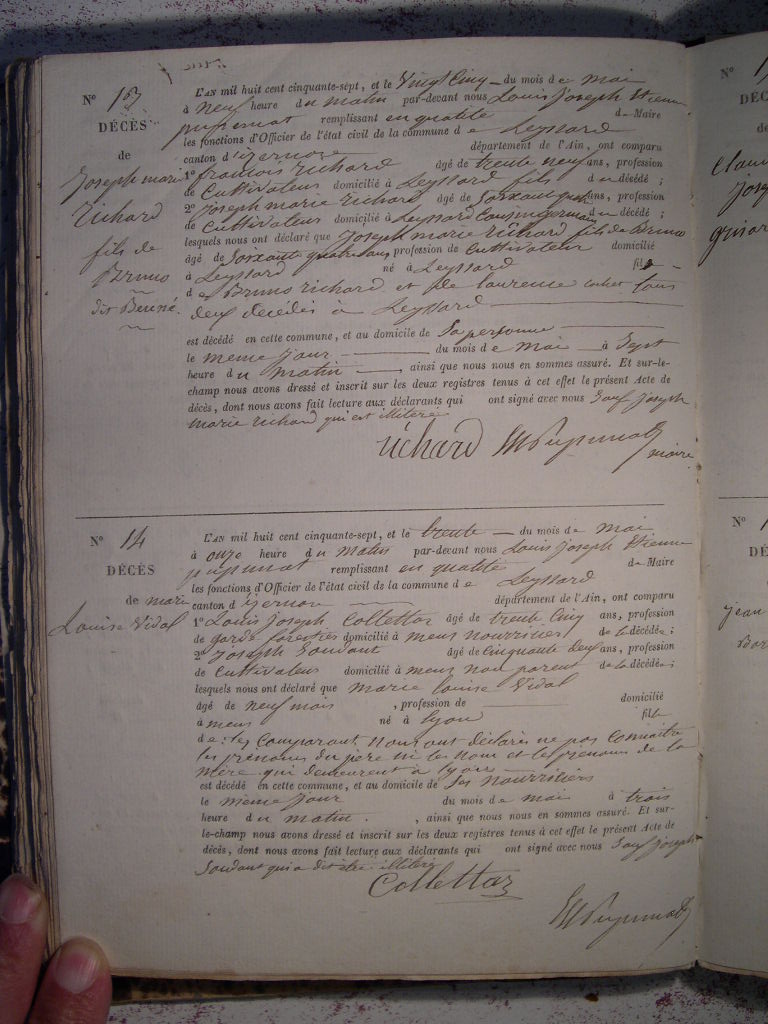 N° 13
DÉCÈS
de
Joseph marie
Richard
fils de
Bruno
dit
L'AN mil huit cent cinquante-sept, et le Vingt Cinq du mois de mai
à neuf heure du matin par-devant nous Louis Joseph Etienne
pupunat remplissant en qualité de Maire
les fonctions d'Officier de l'état civil de la commune de Leyssard
canton d'izernore département de l'Ain, ont comparu
1° francois Richard âgé de trente neuf ans, profession
de Cultivateur domicilié à Leyssard fils du décédé ;
2° Joseph marie Richard âgé de Soixante quatre ans, profession
de Cultivateur domicilié à Leyssard Cousin germain du décédé ;
lesquels nous ont déclaré que Joseph marie Richard fils de Bruno
âgé de Soixante quatre ans profession de Cultivateur domicilié
à Leyssard né à Leyssard fils
de Bruno Richard et de Laurence tous
deux décédés à Leyssard
est décédé en cette commune, et au domicile de Sa personne
le meme jour du mois de mai à Sept
heure du matin ainsi que nous nous en sommes assuré. Et sur-le-
champ nous avons dressé et inscrit sur les deux registres tenus à cet effet le présent Acte de
décès, dont nous avons fait lecture aux déclarants qui ont signé avec nous Sauf Joseph
marie Richard qui est illiteré
richard Pupunat
maire
N° 14
DÉCÈS
de marie
Louise Vidal
L'AN mil huit cent cinquante-sept, et le trente du mois de mai
à onze heure du matin par-devant nous Louis Joseph Etienne
pupunat remplissant en qualité de Maire
les fonctions d'Officier de l'état civil de la commune de Leyssard
canton d'izernore département de l'Ain, ont comparu
1° Louis Joseph Collettaz âgé de trente Cinq ans, profession
de garde forestier domicilié à mens nourricier de la décédée ;
2° Joseph Soudant âgé de Cinquante deux ans, profession
de Cultivateur domicilié à mens non parent de la décédée ;
lesquels nous ont déclaré que marie Louise Vidal
âgé de neuf mois , profession de domicilié
à mens né à Lyon fille
de : les Comparant nous ont déclarés ne pas Connaitre
les prénoms du père ni les nom et les prénoms de la
mère qui demeurent à Lyon
est décédé en cette commune, et au domicile de Ses nourriciers
le meme jour du mois de mai à trois
heure du matin , ainsi que nous nous en sommes assuré. Et sur-
le-champ nous avons dressé et inscrit sur les deux registres tenus à cet effet le présent Acte de
décès, dont nous avons fait lecture aux déclarants qui ont signé avec nous Sauf Joseph
Soudant qui a dit etre illiteré
Collettaz
Pupunat
N° 1
DÉC
Clau
Jose
N° 1
DÉ
jean